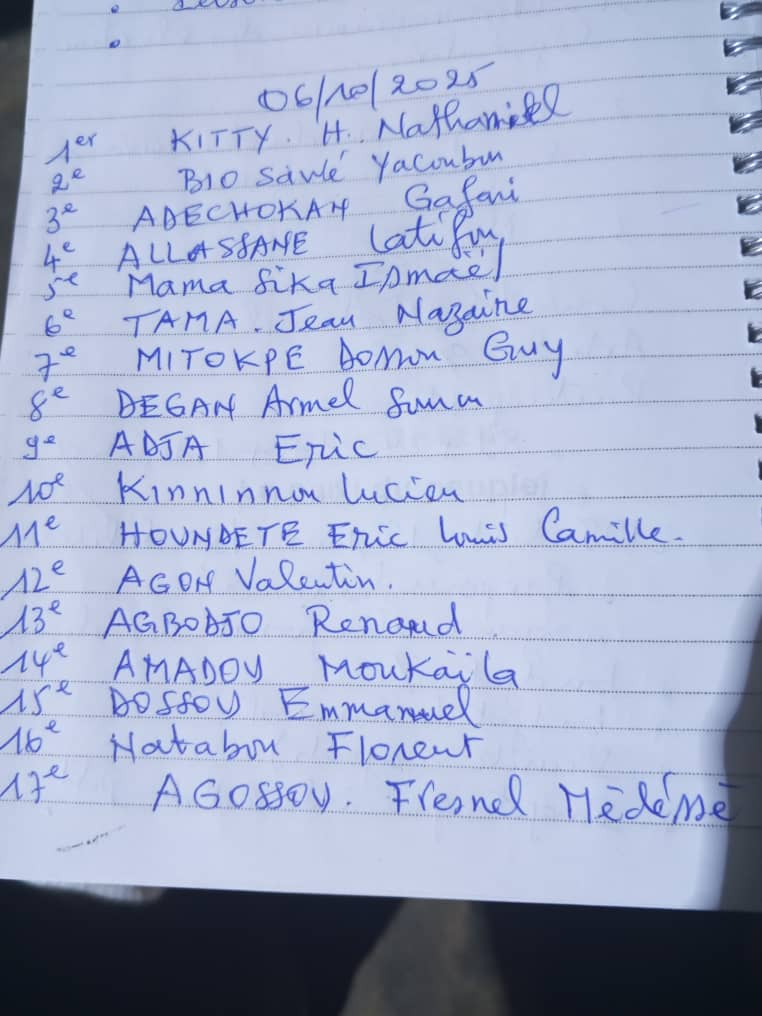 06/10/2025
1er KITTY. H. Nathaniel
2e BIO Sawlé Yacoubou
3e ADECHOKAN Gafari
4e ALLASSANE Latifou
5e Mama Sika Ismaël
6e TAMA. Jean Nazaire
7e MITOKPE Dossou Guy
8e DEGAN Armel
9e ADJA Eric
10e Kinninnou Lucien
11e HOUNDETE Eric Louis Camille.
12e AGON Valentin.
13e AGBODJO Renaud
14e AMADOU Moukaïla
15e DOSSOU Emmanuel
16e Natabou Florent
17e AGOSSOU. Fresnel Mèdéssè